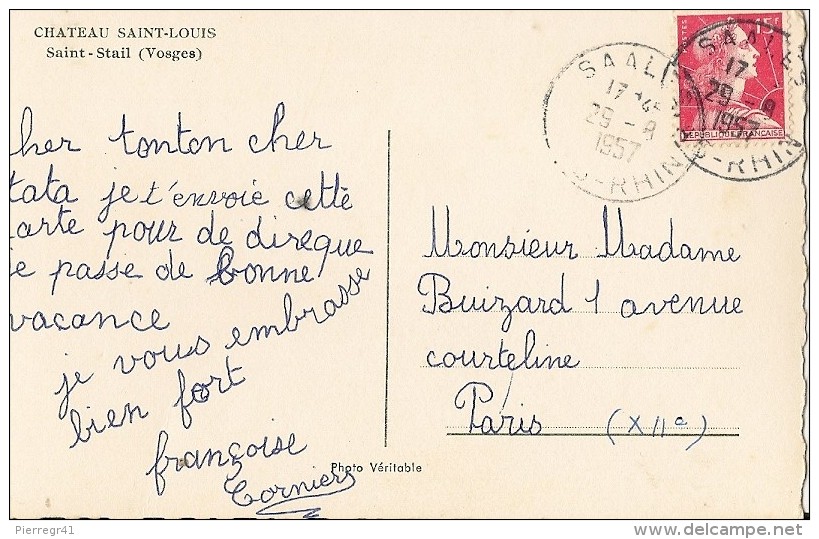 CHATEAU SAINT-LOUIS
Saint-Stail (Vosges)
her tonton cher
tata je t'envoie cette
arte pour de direque
e passe de bonne
vacance
je vous embrasse
bien fort
françoise
Torniers
Photo Véritable
SAALES
17 45
29 - 8
1957
B-RHIN
POSTES
15F
REPUBLIQUE FRANÇAISE
SAALES
17
29 - 8
1957
B-RHIN
Monsieur Madame
Buizard 1 avenue
courteline
Paris (XIIe)
Pierregr41
delcampe.net